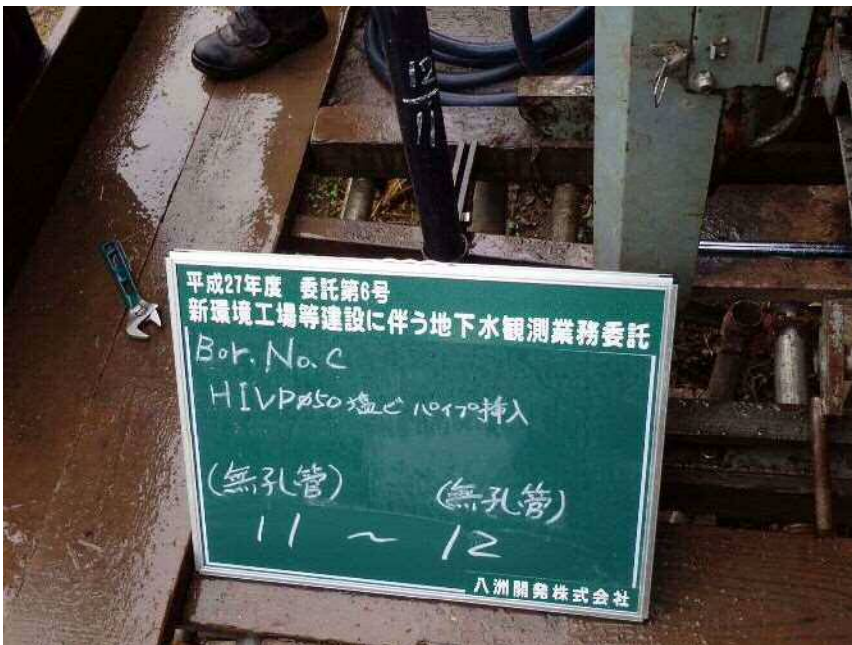 12
11
平成27年度 委託第6号
新環境工場等建設に伴う地下水観測業務委託
Bor. No. C
HIVPφ50 塩ビ パイプ挿入
(無孔管) (無孔管)
11 ~ 12
八洲開発株式会社